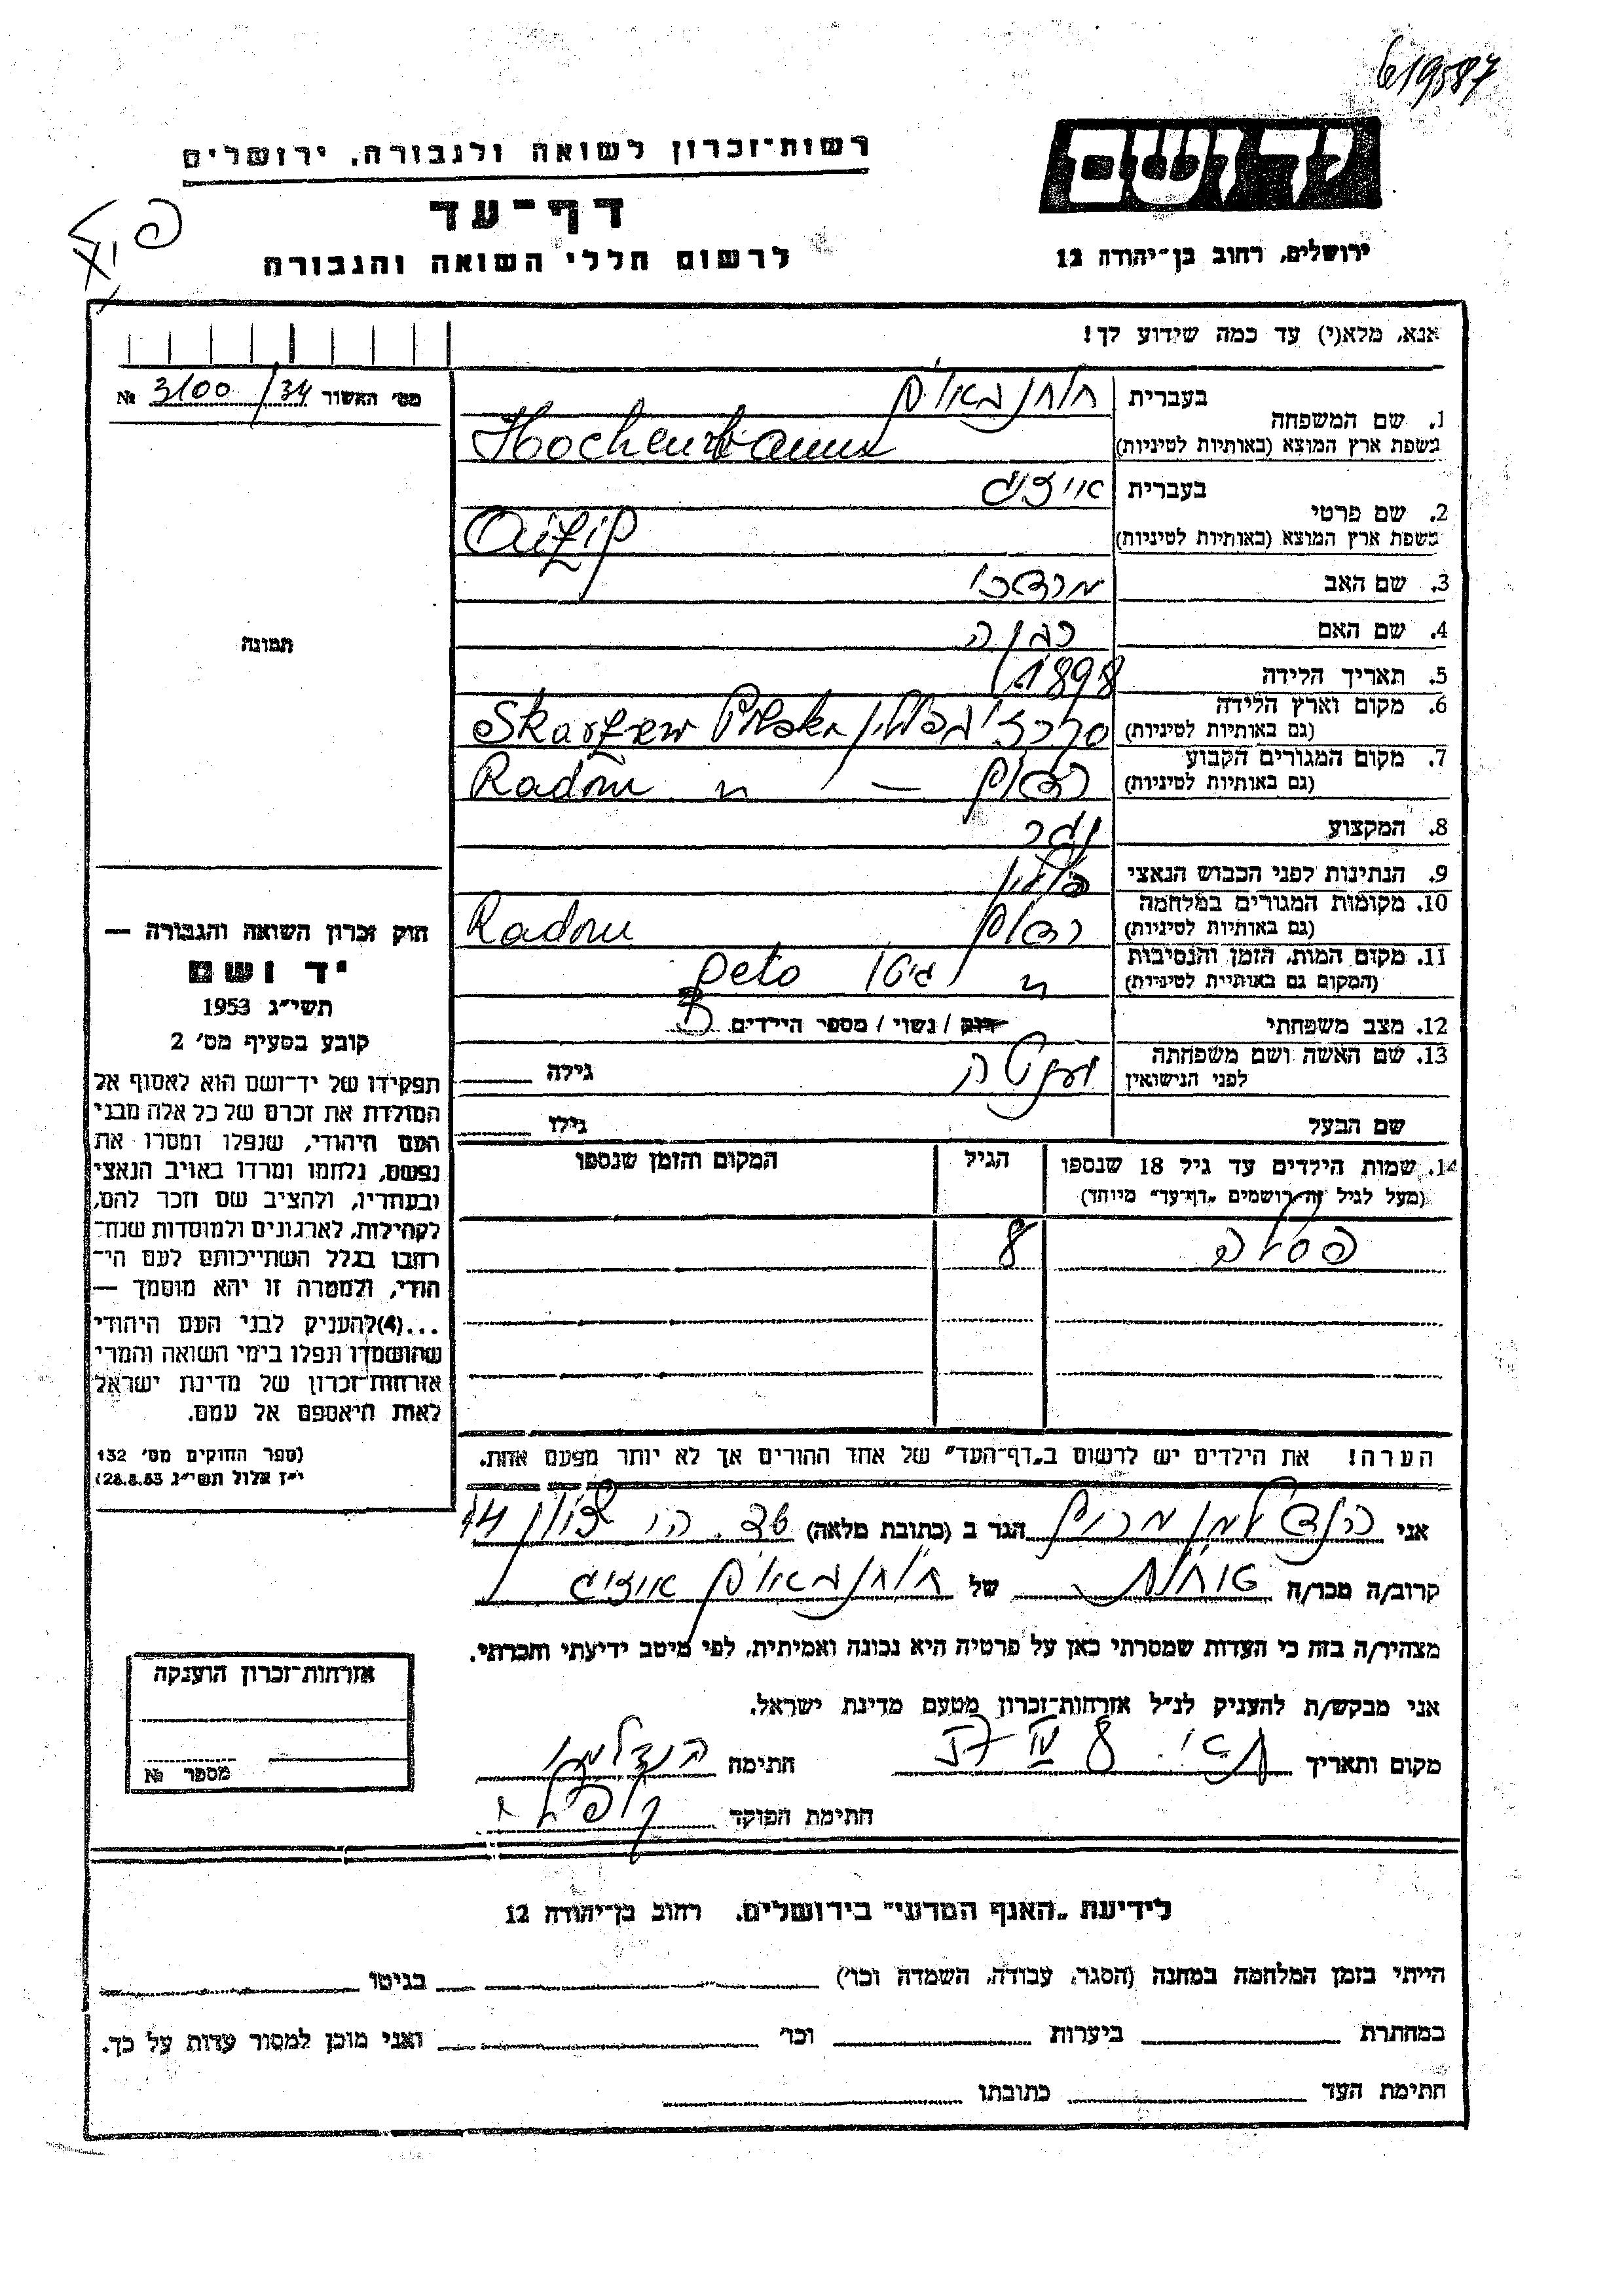 619587
יד ושם
רשות־זכרון לשואה ולגבורה, ירושלים
דף־עד
לרשום חללי השואה והגבורה
ירושלים, רחוב בן־יהודה 12
אנא, מלא(י) עד כמה שידוע לך!
מס' האשור 3100/34 №
1. שם המשפחה
בעברית
בשפת ארץ המוצא (באותיות לטיניות)
2. שם פרטי
בעברית
בשפת ארץ המוצא (באותיות לטיניות)
3. שם האב מרדכי
4. שם האם
5. תאריך הלידה 1898
6. מקום וארץ הלידה
(גם באותיות לטיניות) Polska
7. מקום המגורים הקבוע רדום — ״
(גם באותיות לטיניות) Radom
8. המקצוע נגר
9. הנתינות לפני הכבוש הנאצי
10. מקומות המגורים במלחמה רדום
(גם באותיות לטיניות) Radom
11. מקום המות, הזמן והנסיבות ״ גיטו
(המקום גם באותיות לטיניות) geto
12. מצב משפחתי רווק / נשוי / מספר הילדים
13. שם האשה ושם משפחתה
לפני הנישואין
גילה
שם הבעל
גילו
14. שמות הילדים עד גיל 18 שנספו
(מעל לגיל זה רושמים „דף־עד" מיוחד)
הגיל
המקום והזמן שנספו
8
הערה! את הילדים יש לרשום ב„דף־העד" של אחד ההורים אך לא יותר מפעם אחת.
תמונה
חוק זכרון השואה והגבורה —
יד ושם
תשי״ג 1953
קובע בסעיף מס' 2
תפקידו של יד־ושם הוא לאסוף אל
המולדת את זכרם של כל אלה מבני
העם היהודי, שנפלו ומסרו את
נפשם, נלחמו ומרדו באויב הנאצי
ובעוזריו, ולהציב שם וזכר להם,
לקהילות, לארגונים ולמוסדות שנח־
רחבו בגלל השתייכותם לעם הי־
הודי, ולמטרה זו יהא מוסמך —
...(4)להעניק לבני העם היהודי
שהושמדו ונפלו בימי השואה והמרי
אזרחות־זכרון של מדינת ישראל
לאות היאספם אל עמם.
(ספר החוקים מס' 132
י״ז אלול תשי״ג 28.8.53)
אני הנדלמן מרים הגר ב (כתובת מלאה) 14
קרוב/ה מכר/ה של
מצהיר/ה בזה כי העדות שמסרתי כאן על פרטיה היא נכונה ואמיתית, לפי מיטב ידיעתי והכרתי.
אני מבקש/ת להעניק לנ״ל אזרחות־זכרון מטעם מדינת ישראל.
מקום ותאריך חתימה הנדלמן
חתימת הפוקד
אזרחות־זכרון הוענקה
מספר №
לידיעת „האגף המדעי" בירושלים. רחוב בן־יהודה 12
הייתי בזמן המלחמה במחנה (הסגר, עבודה, השמדה וכו') בגיטו
במחתרת ביערות וכו' ואני מוכן למסור עדות על כך.
חתימת העד כתובתו